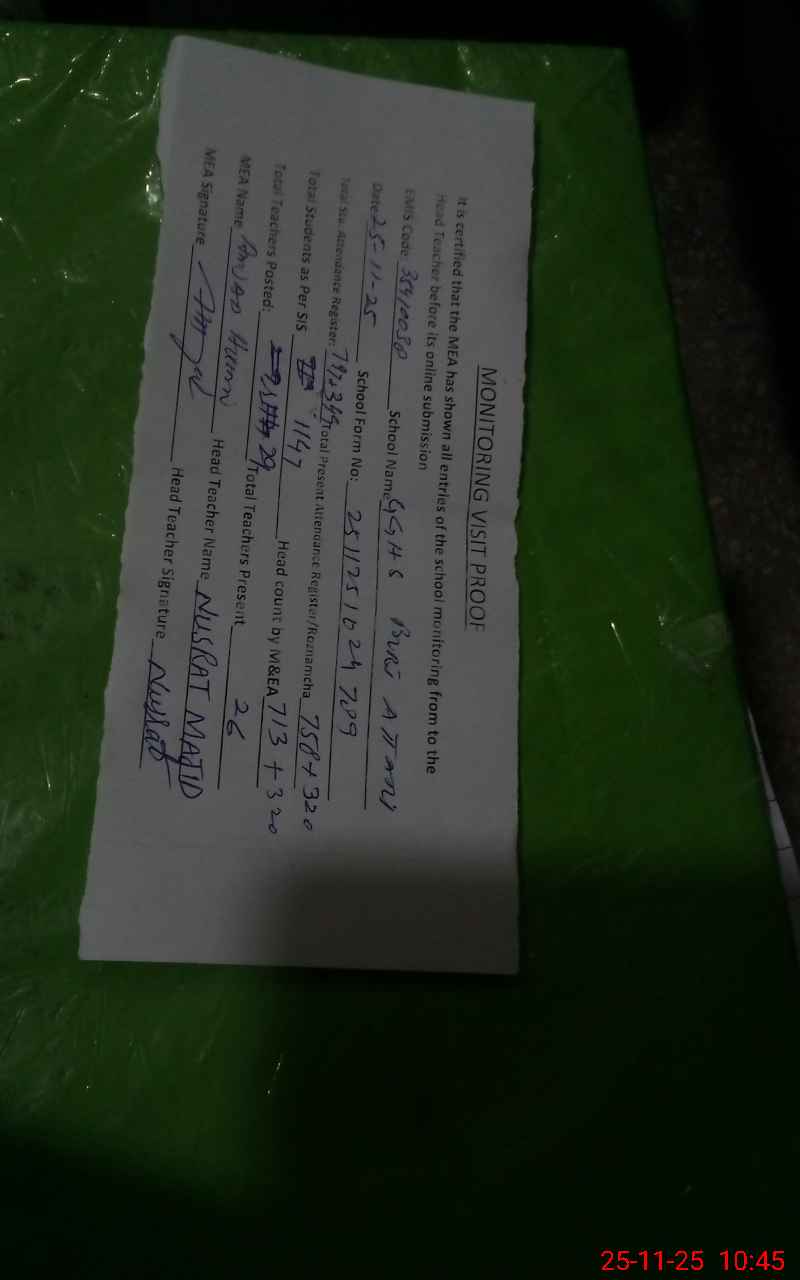 MONITORING VISIT PROOF
It is certified that the MEA has shown all entries of the school monitoring from to the
Head Teacher before its online submission
EMIS Code 35410030 School Name GGHS BURJ ATTARI
Date 25-11-25 School Form No: 2511251024789
Total Stu. Attendance Register: Total Present Attendance Register/Roznamcha 758+320
Total Students as Per SIS 1147 Head count by M&EA 713+320
Total Teachers Posted: 29 Total Teachers Present 26
MEA Name Head Teacher Name NUSRAT MAJID
MEA Signature Amjad Head Teacher Signature Nusrat
25-11-25 10:45